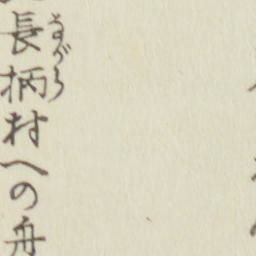 長柄村への舟
ながら